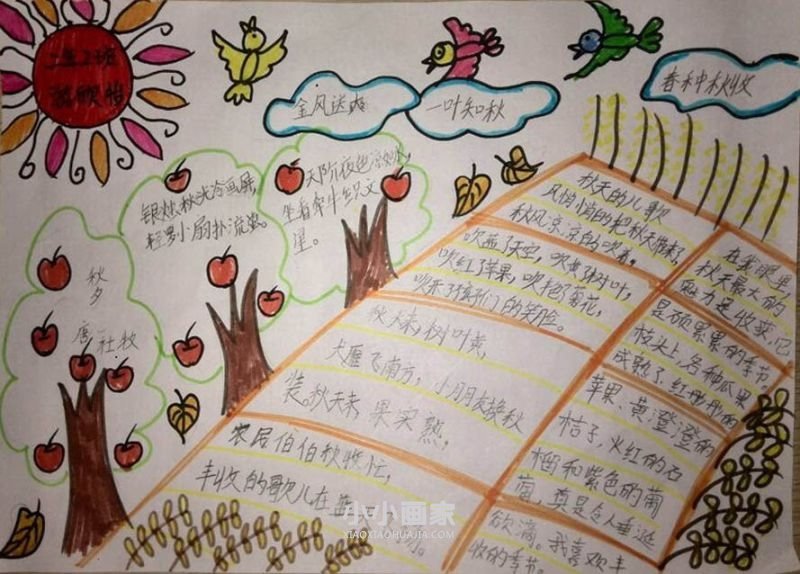 二年2班
金风送爽
一叶知秋
春种秋收
银烛秋光冷画屏,
轻罗小扇扑流萤。
天阶夜色凉如水,
坐看牵牛织女
星。
秋夕
唐 杜牧
秋天的儿歌
风悄悄的把秋天带来了,
秋风凉凉的吹着。
吹蓝了天空,吹黄了树叶,
吹红了苹果,吹艳了菊花,
吹开了孩子们的笑脸。
秋天来,树叶黄,
大雁飞南方,小朋友换秋
装。秋天来,果实熟,
农民伯伯秋收忙,
丰收的歌儿在蓝
在我眼里
秋天最大的
魅力是收获,它
是硕果累累的季节。
枝头上各种瓜果
成熟了,红彤彤的
苹果、黄澄澄的
桔子、火红的石
榴和紫色的葡
萄,真是令人垂涎
欲滴。我喜欢丰
收的季节。
小小画家
XIAOXIAOHUAJIA.COM